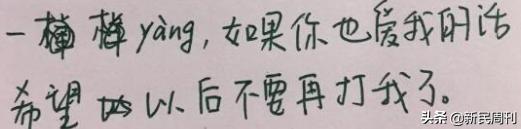 一 yàng,如果你也爱我的话
希望 以后不要再打我了。
头条 @新民周刊